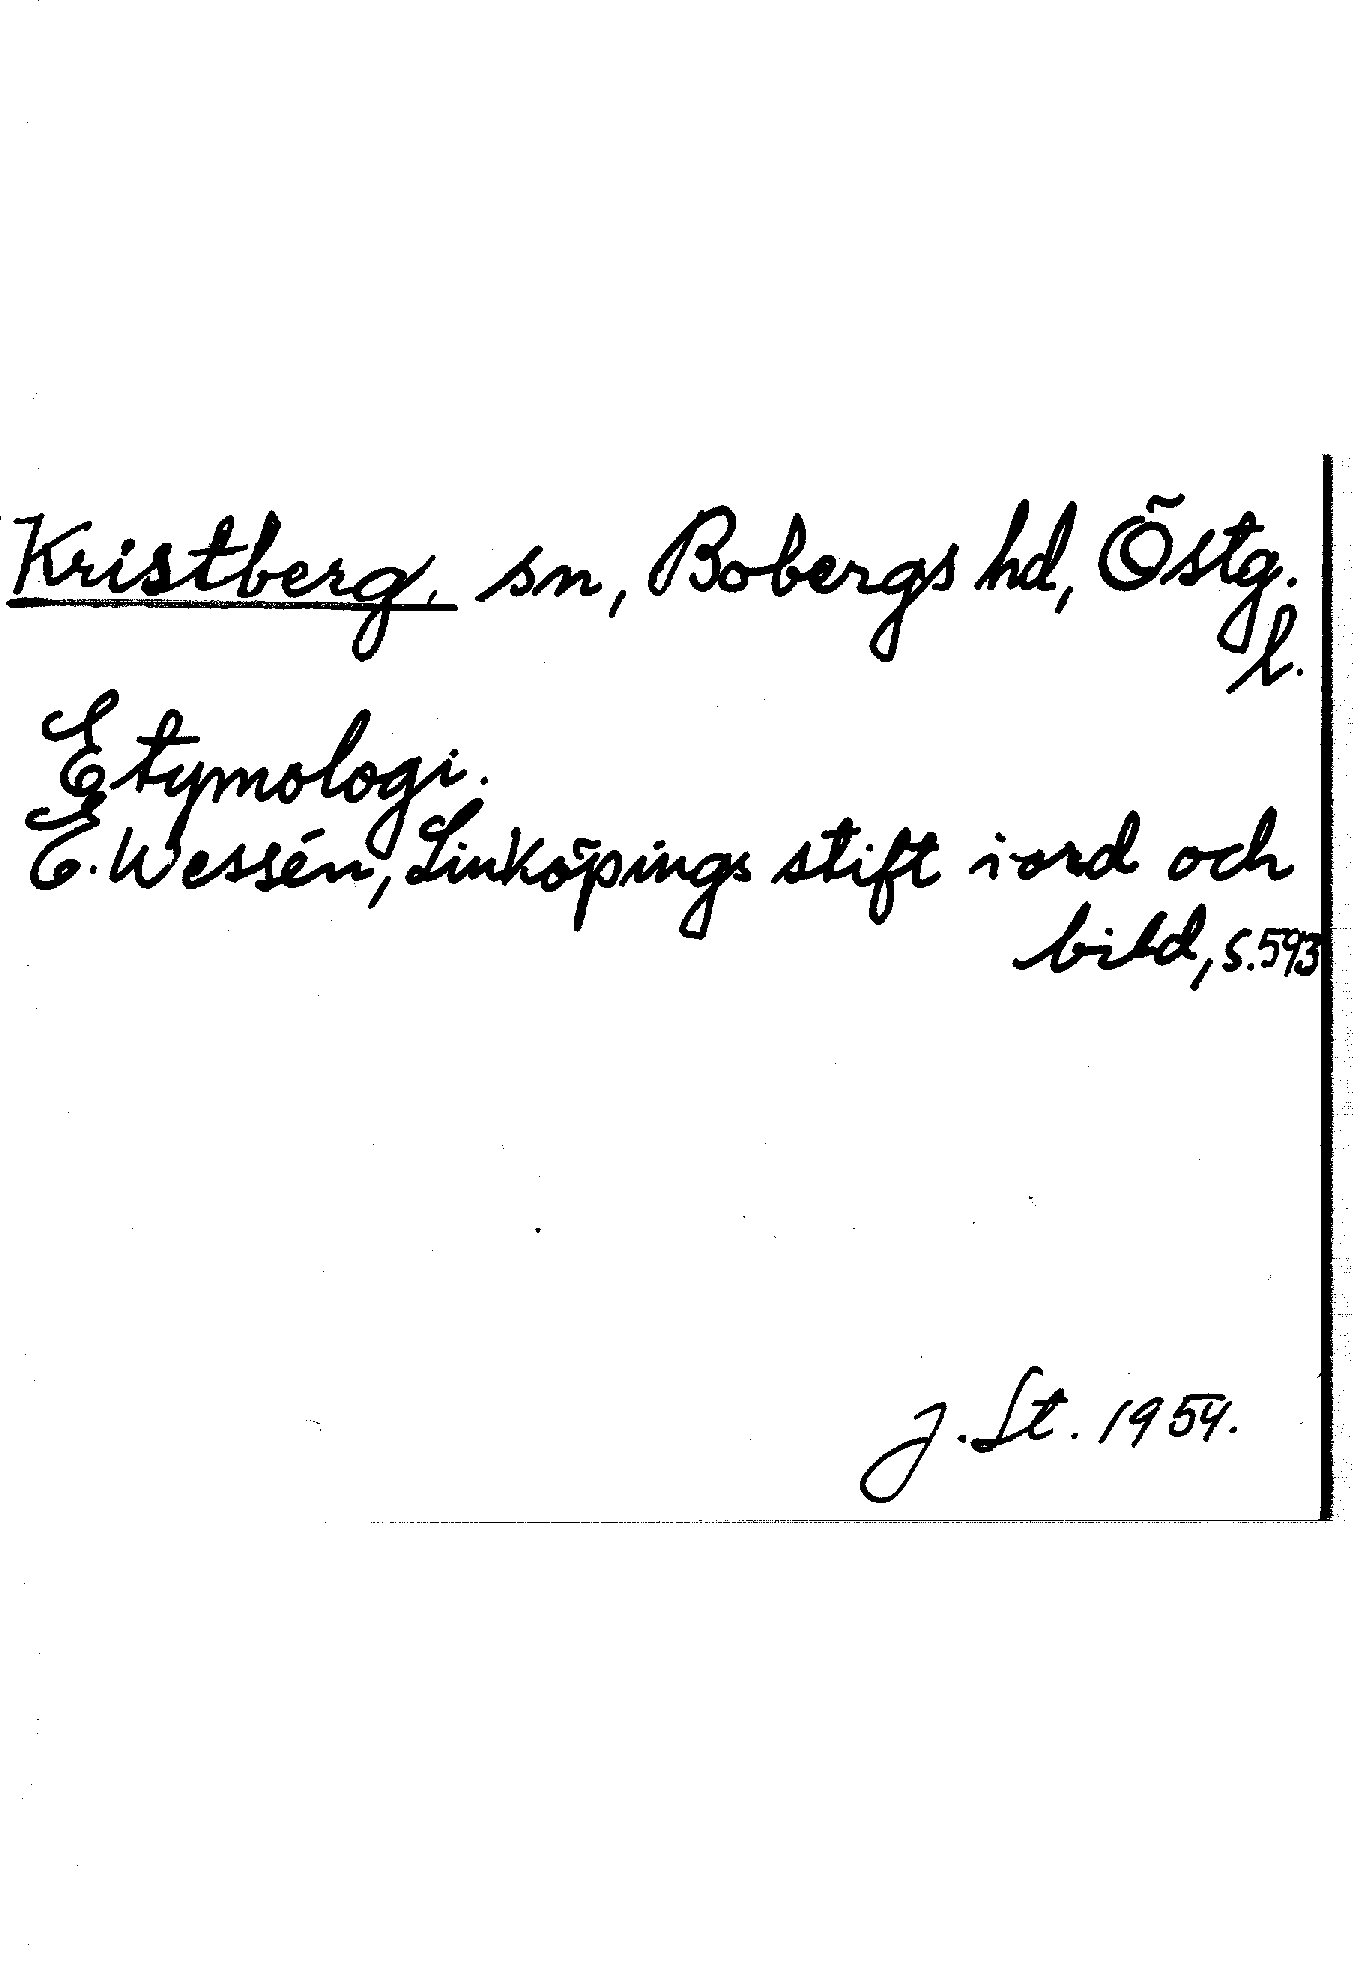 Kristberg, sn, Bobergs hd, Östg.
l.
Etymologi.
E. Wessén, Linköpings stift i ord och
bild, s. 593
J. St. 1954.